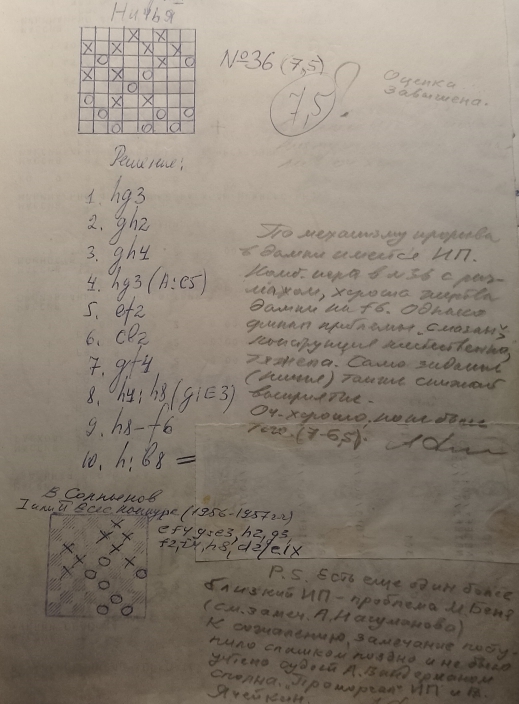 Ничья
№36 (7,5)
7,5
Оценка
завышена.
Решение:
1. hg3
2. gh2
3. gh4
4. hg3 (A:c5)
5. ef2
6. cb2
7. gf4
8. h4; h8 (g:E3)
9. h8-f6
10. h:b8 =
По механизму прорыва
в дамки имеется ИП.
игра в №36 с раз-
махом, хороша жертва
дамки на f6. Однако
финал проблемы "смазан",
конструкция
тяжела. Само задание
(ничья) также снижает
восприятие.
Оч. хорошо, но не более
того. (7-6,5).
В. Солнцев
(1956-1957 гг)
ef4, g:e3, h2, g3,
P.S. Есть еще один более
близкий ИП - проблема М. Бенд
(см. замеч. А. Нагуманова)
К сожалению, замечание посту-
пило слишком поздно и не было
учтено судьёй А.
сполна. "Проморгал" ИП и В.
Ячейкин.